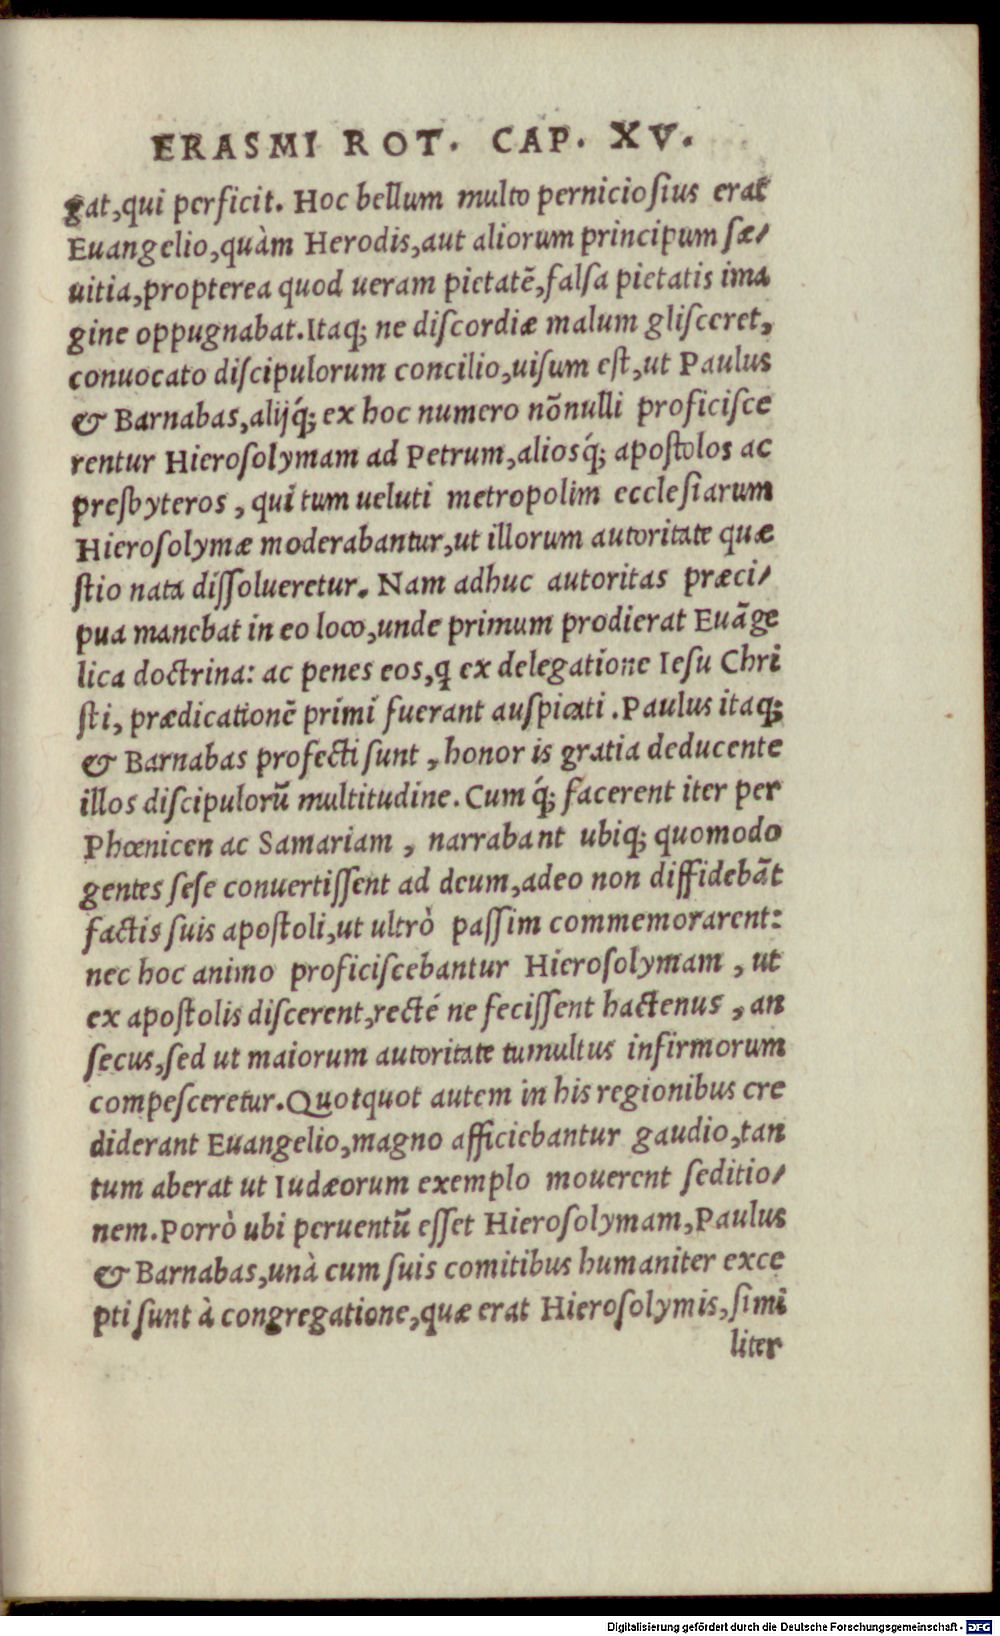 ERASMI ROT. CAP. XV.
gat,qui perficit. Hoc bellum multo perniciosius erat
Euangelio,quàm Herodis,aut aliorum principum sæ/
uitia,propterea quod ueram pietatẽ,falsa pietatis ima
gine oppugnabat.Itaq; ne discordiæ malum glisceret,
conuocato discipulorum concilio,uisum est,ut Paulus
& Barnabas,alijq́; ex hoc numero nõnulli proficisce
rentur Hierosolymam ad Petrum,aliosq́; apostolos ac
presbyteros, qui tum ueluti metropolim ecclesiarum
Hierosolymæ moderabantur,ut illorum autoritate quæ
stio nata dissolueretur. Nam adhuc autoritas præci/
pua manebat in eo loco,unde primum prodierat Euãge
lica doctrina: ac penes eos,ꝗ ex delegatione Iesu Chri
sti, prædicationẽ primi fuerant auspicati .Paulus itaq;
& Barnabas profecti sunt , honor is gratia deducente
illos discipulorũ multitudine. Cum q́; facerent iter per
Phœnicen ac Samariam , narrabant ubiq; quomodo
gentes sese conuertissent ad deum,adeo non diffidebãt
factis suis apostoli,ut ultrò passim commemorarent:
nec hoc animo proficiscebantur Hierosolymam , ut
ex apostolis discerent,recté ne fecissent hactenus , an
secus,sed ut maiorum autoritate tumultus infirmorum
compesceretur.Quotquot autem in his regionibus cre
diderant Euangelio,magno afficiebantur gaudio,tan
tum aberat ut Iudæorum exemplo mouerent seditio/
nem.Porrò ubi peruentũ esset Hierosolymam,Paulus
& Barnabas,unà cum suis comitibus humaniter exce
pti sunt à congregatione,quæ erat Hierosolymis,simi
liter
Digitalisierung gefördert durch die Deutsche Forschungsgemeinschaft - DFG